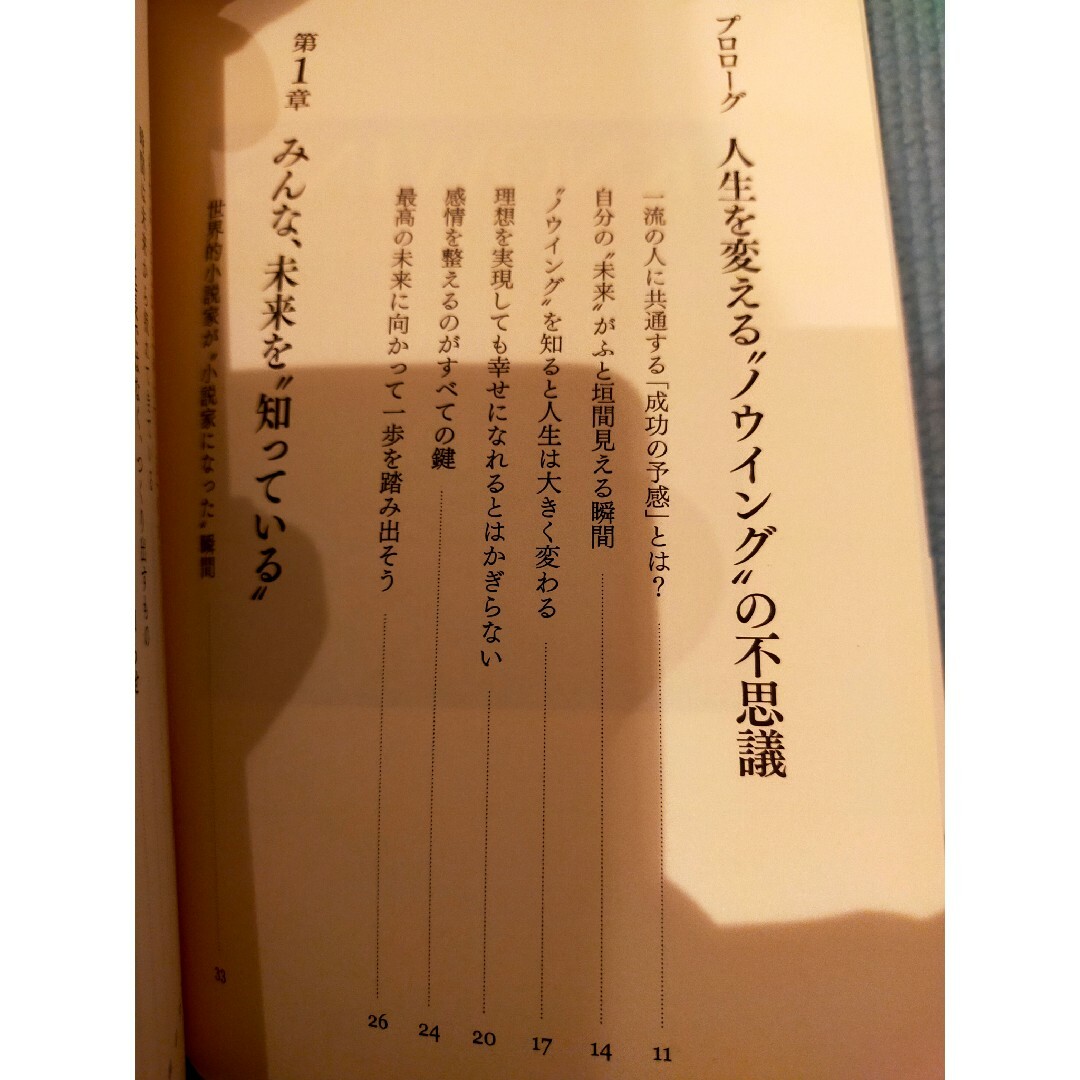 プロローグ 人生を変える〝ノウイング〟の不思議
一流の人に共通する「成功の予感」とは? 11
自分の〝未来〟がふと垣間見える瞬間 14
〝ノウイング〟を知ると人生は大きく変わる 17
理想を実現しても幸せになれるとはかぎらない 20
感情を整えるのがすべての鍵 24
最高の未来に向かって一歩を踏み出そう 26
第1章 みんな、未来を〝知っている〟
世界的小説家が〝小説家になった〟瞬間 33